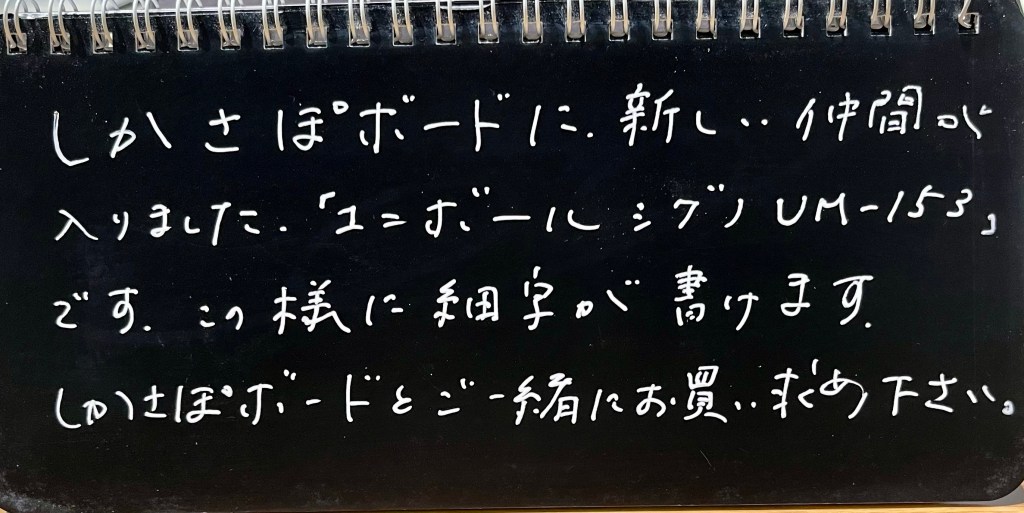 しかさぽボードに.新しい仲間が
入りました.「ユニボールシグノUM-153」
です.この様に細字が書けます.
しかさぽボードとご一緒にお買い求め下さい。